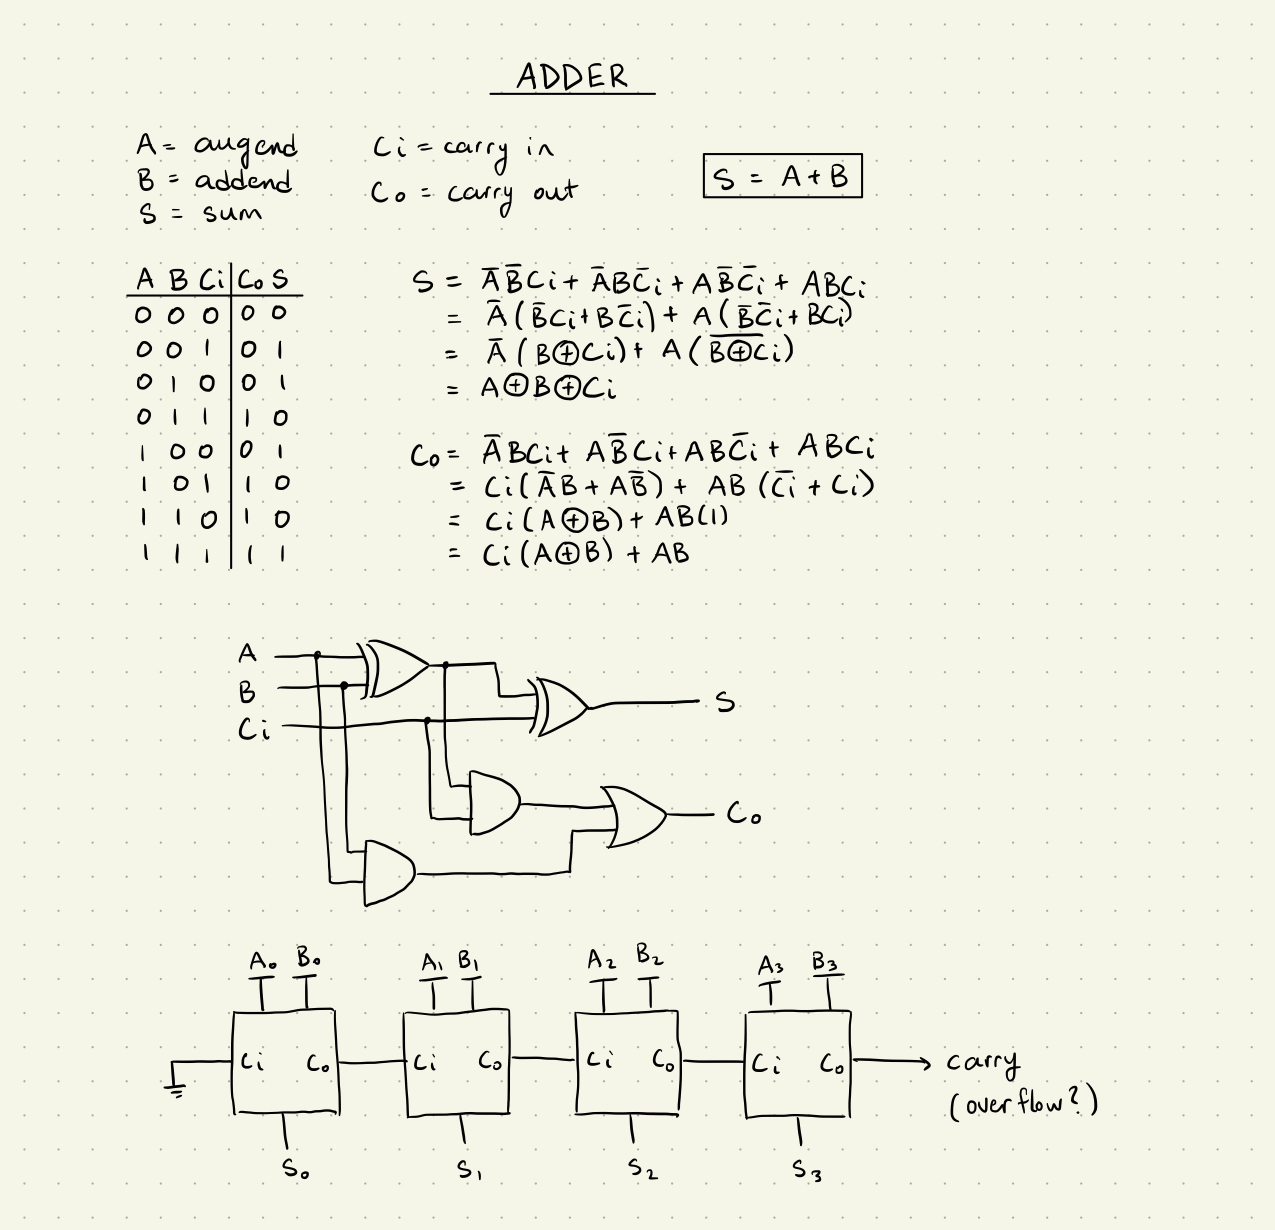 ADDER
A = augend
B = addend
S = sum
Ci = carry in
Co = carry out
S = A + B
A B Ci Co S
0 0 0 0 0
0 0 1 0 1
0 1 0 0 1
0 1 1 1 0
1 0 0 0 1
1 0 1 1 0
1 1 0 1 0
1 1 1 1 1
S = A̅B̅Ci + A̅BC̅i + AB̅C̅i + ABCi
= A̅(B̅Ci + BC̅i) + A(B̅C̅i + BCi)
= A̅(B⊕Ci) + A(B̅⊕̅C̅i̅)
= A⊕B⊕Ci
Co = A̅BCi + AB̅Ci + ABC̅i + ABCi
= Ci(A̅B + AB̅) + AB(C̅i + Ci)
= Ci(A⊕B) + AB(1)
= Ci(A⊕B) + AB
A
B
Ci
S
Co
A₀ B₀ A₁ B₁ A₂ B₂ A₃ B₃
Ci Co Ci Co Ci Co Ci Co carry
(overflow?)
S₀ S₁ S₂ S₃